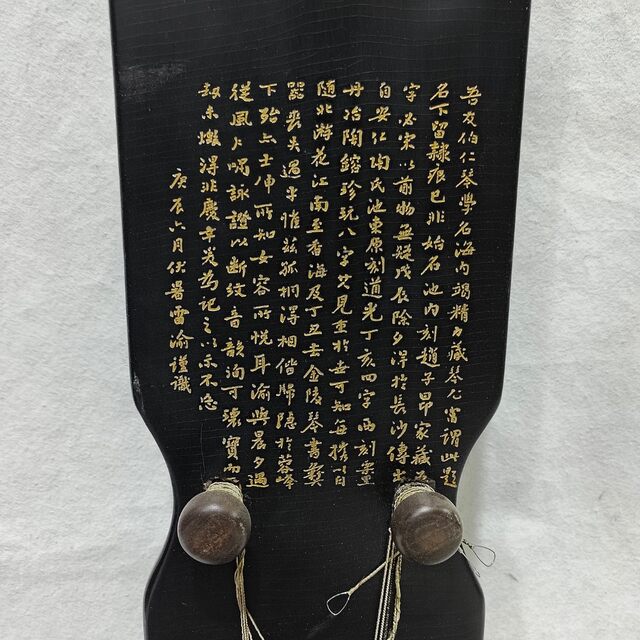 吾友伯仁琴學名海內褐精力藏琴尤富謂此題
名下留隸痕已非始石池內刻趙子昂家藏
字必宋以前物無疑戊辰除夕浮於長沙傳出
自安仁陶氏池東原刻道光丁亥四字西刻臺
丹冶陶鎔珍玩八字其見重於世可知每攜以自
隨北游花江南至香海及丁丑去金陵琴書彝
器喪失過半惟茲孤桐得相偕歸隱於蓉峰
下跆云士伸所知女容所悅耳渝與晨夕過
從風人嘯詠證以斷紋音韻洵可瓌寶而
叙未燬得非慶幸爰為記之以示不忘
庚辰六月伏暑雷渝謹識